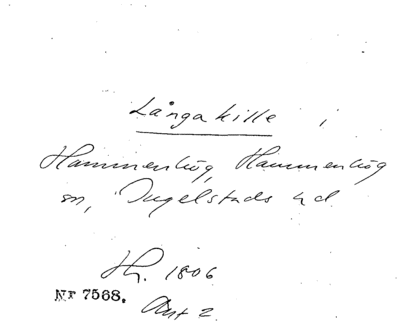 Långa kille i
Hammenhög, Hammenhög
sn, Ingelstads hd
Hh. 1806
Nr 7568. Akt 2